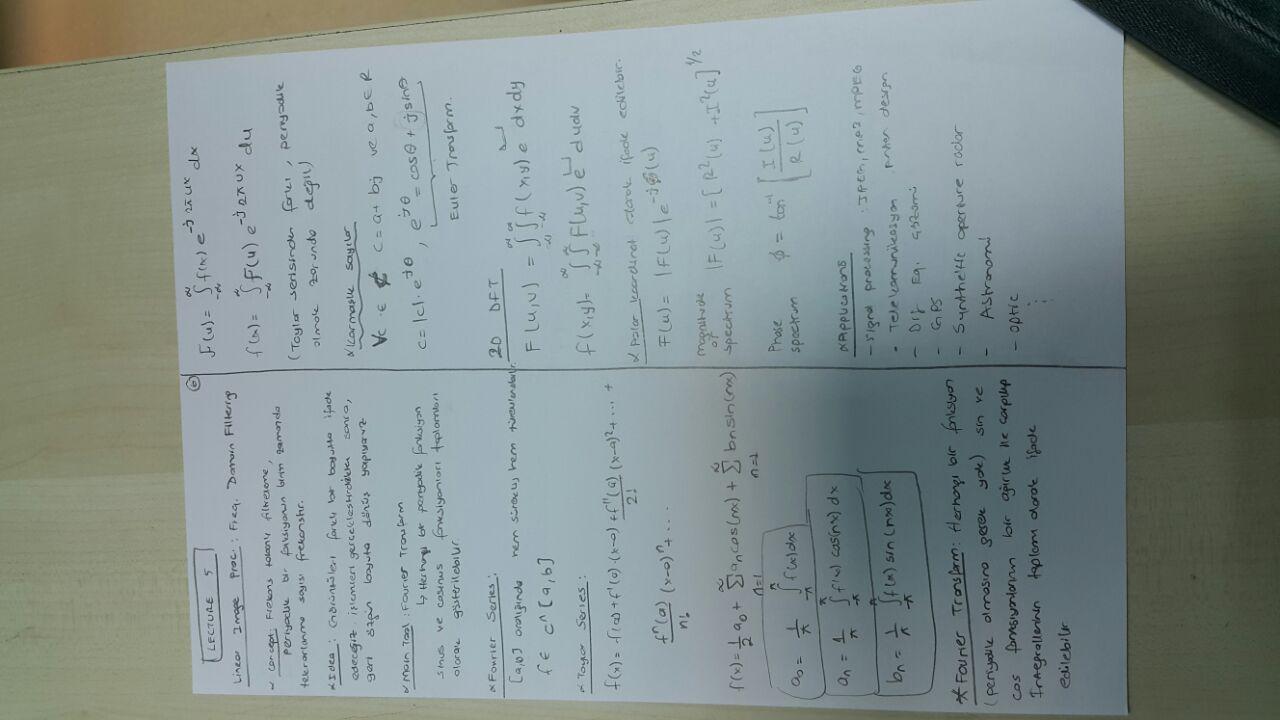 LECTURE 5
6
Linear Image Proc.: Freq. Domain Filtering
Concept: Frekans tabanlı filtreleme,
periyodik bir fonksiyonun birim zamanda
tekrarlanma sayısı frekanstır.
Idea: Görüntüleri farklı bir boyutta ifade
edeceğiz. işlemleri gerçekleştirdikten sonra,
geri özgün boyuta dönüş yapıyoruz
Main Tool: Fourier Transform
↳ Herhangi bir periyodik fonksiyon
sinus ve cosinus fonksiyonları toplamları
olarak gösterilebilir.
Fourier Series:
[a,b] aralığında hem sürekli hem türevlenebilir.
f ∈ c^n [a,b]
Taylor Series:
f(x) = f(a) + f'(a)·(x-a) + f''(a)/2! (x-a)² + ... +
f^n(a)/n! (x-a)^n + ...
f(x) = 1/2 a₀ + ∞Σn=1 an cos(nx) + ∞Σn=1 bn sin(nx)
a₀ = 1/π ∫-π^π f(x)dx
an = 1/π ∫-π^π f(x) cos(nx) dx
bn = 1/π ∫-π^π f(x) sin(nx)dx
* Fourier Transform: Herhangi bir fonksiyon
(periyodik olmasına gerek yok) sin ve
cos fonksiyonlarının bir ağırlık ile çarpılıp
İntegrallerinin toplamı olarak ifade
edilebilir
F(u) = ∫-∞^∞ f(x) e^-j2πux dx
f(x) = ∫-∞^∞ F(u) e^-j2πux du
(Taylor serisinden farkı, periyodik
olmak zorunda değil)
Karmaşık sayılar
∀c ∈ ₵ c = a + bj ve a,b ∈ R
c = |c|·e^jθ, e^jθ = cosθ + jsinθ
Euler Transform.
2D DFT
F(u,v) = ∫-∞^∞ ∫-∞^∞ f(x,y) e dxdy
f(x,y) = ∫-∞^∞ ∫-∞^∞ F(u,v) e dudv
Polar koordinat olarak ifade edilebilir.
F(u) = |F(u)|e^-jϕ(u)
magnitude
of
spectrum |F(u)| = [R²(u) + I²(u)]^1/2
Phase
spectrum ϕ = tan^-1 [I(u)/R(u)]
Applications
- Signal processing: JPEG, mp3, MPEG
- Telekomunikasyon design
- Dif Eq. çözümü
- GPS
- Synthetic aperture radar
- Astronomi
- optic